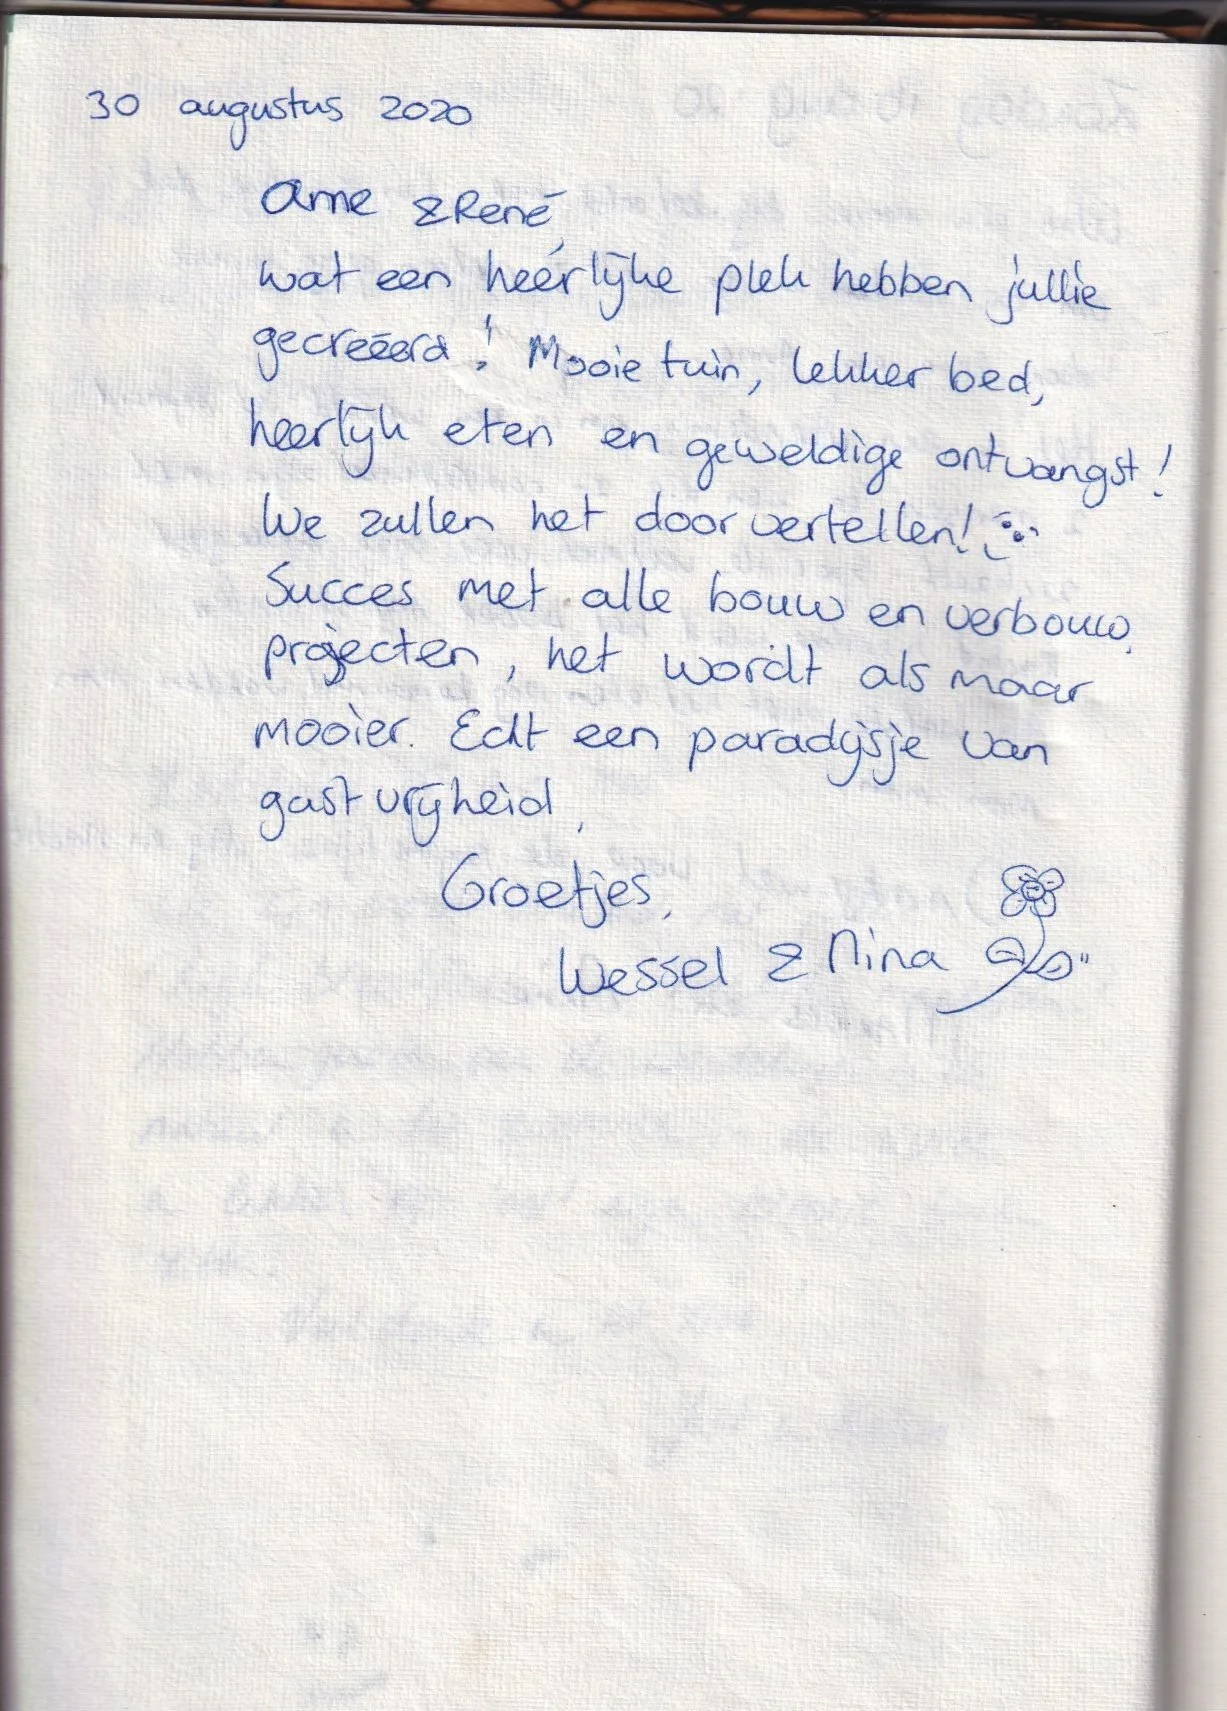 30 augustus 2020
Ame & René,
wat een heerlijke plek hebben jullie
gecreëerd! Mooie tuin, lekker bed,
heerlijk eten en geweldige ontvangst!
We zullen het doorvertellen! :)
Succes met alle bouw en verbouw
projecten, het wordt als maar
mooier. Echt een paradijsje van
gastvrijheid,
Groetjes,
Wessel & Nina